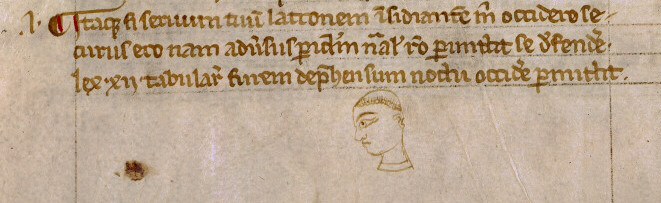 ·I· ¶ Itaqꝫ si seruum tuū latronem īsidiantē m̄ occidero se-
curus ero nam adu̾sus ꝑic̄lm nāl̓ rō ꝑmittit se defende̾.
lex ·xii· tabulaꝝ furem dep̾hensum noctu occide̾ ꝑmittit.